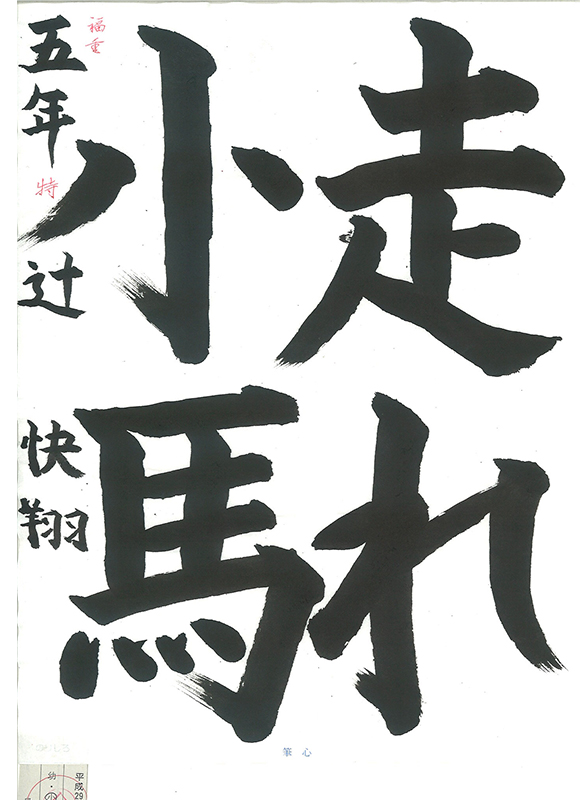 走れ
小馬
五年 辻 快翔
福重
特
筆心
平成29
幼・小